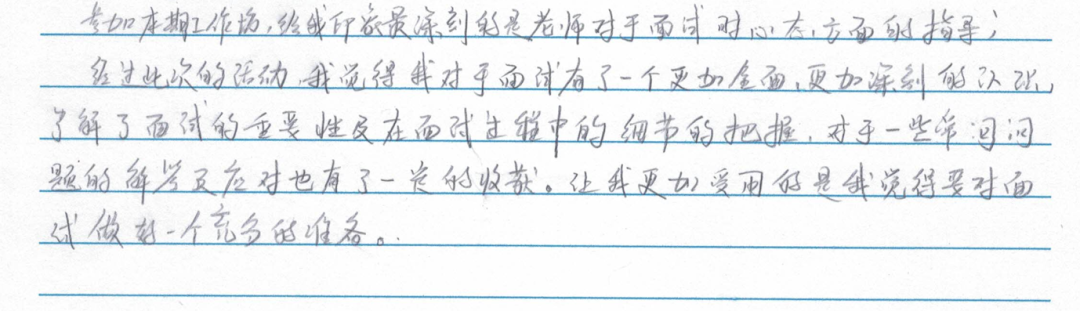 参加本期工作坊,给我印象最深刻的是老师对于面试时心态方面的指导;
经过此次的活动,我觉得我对于面试有了一个更加全面、更加深刻的认识,
了解了面试的重要性及在面试过程中的细节的把握,对于一些常问问
题的解答及应对也有了一定的收获。让我更加受用的是我觉得要对面
试做好一个充分的准备。